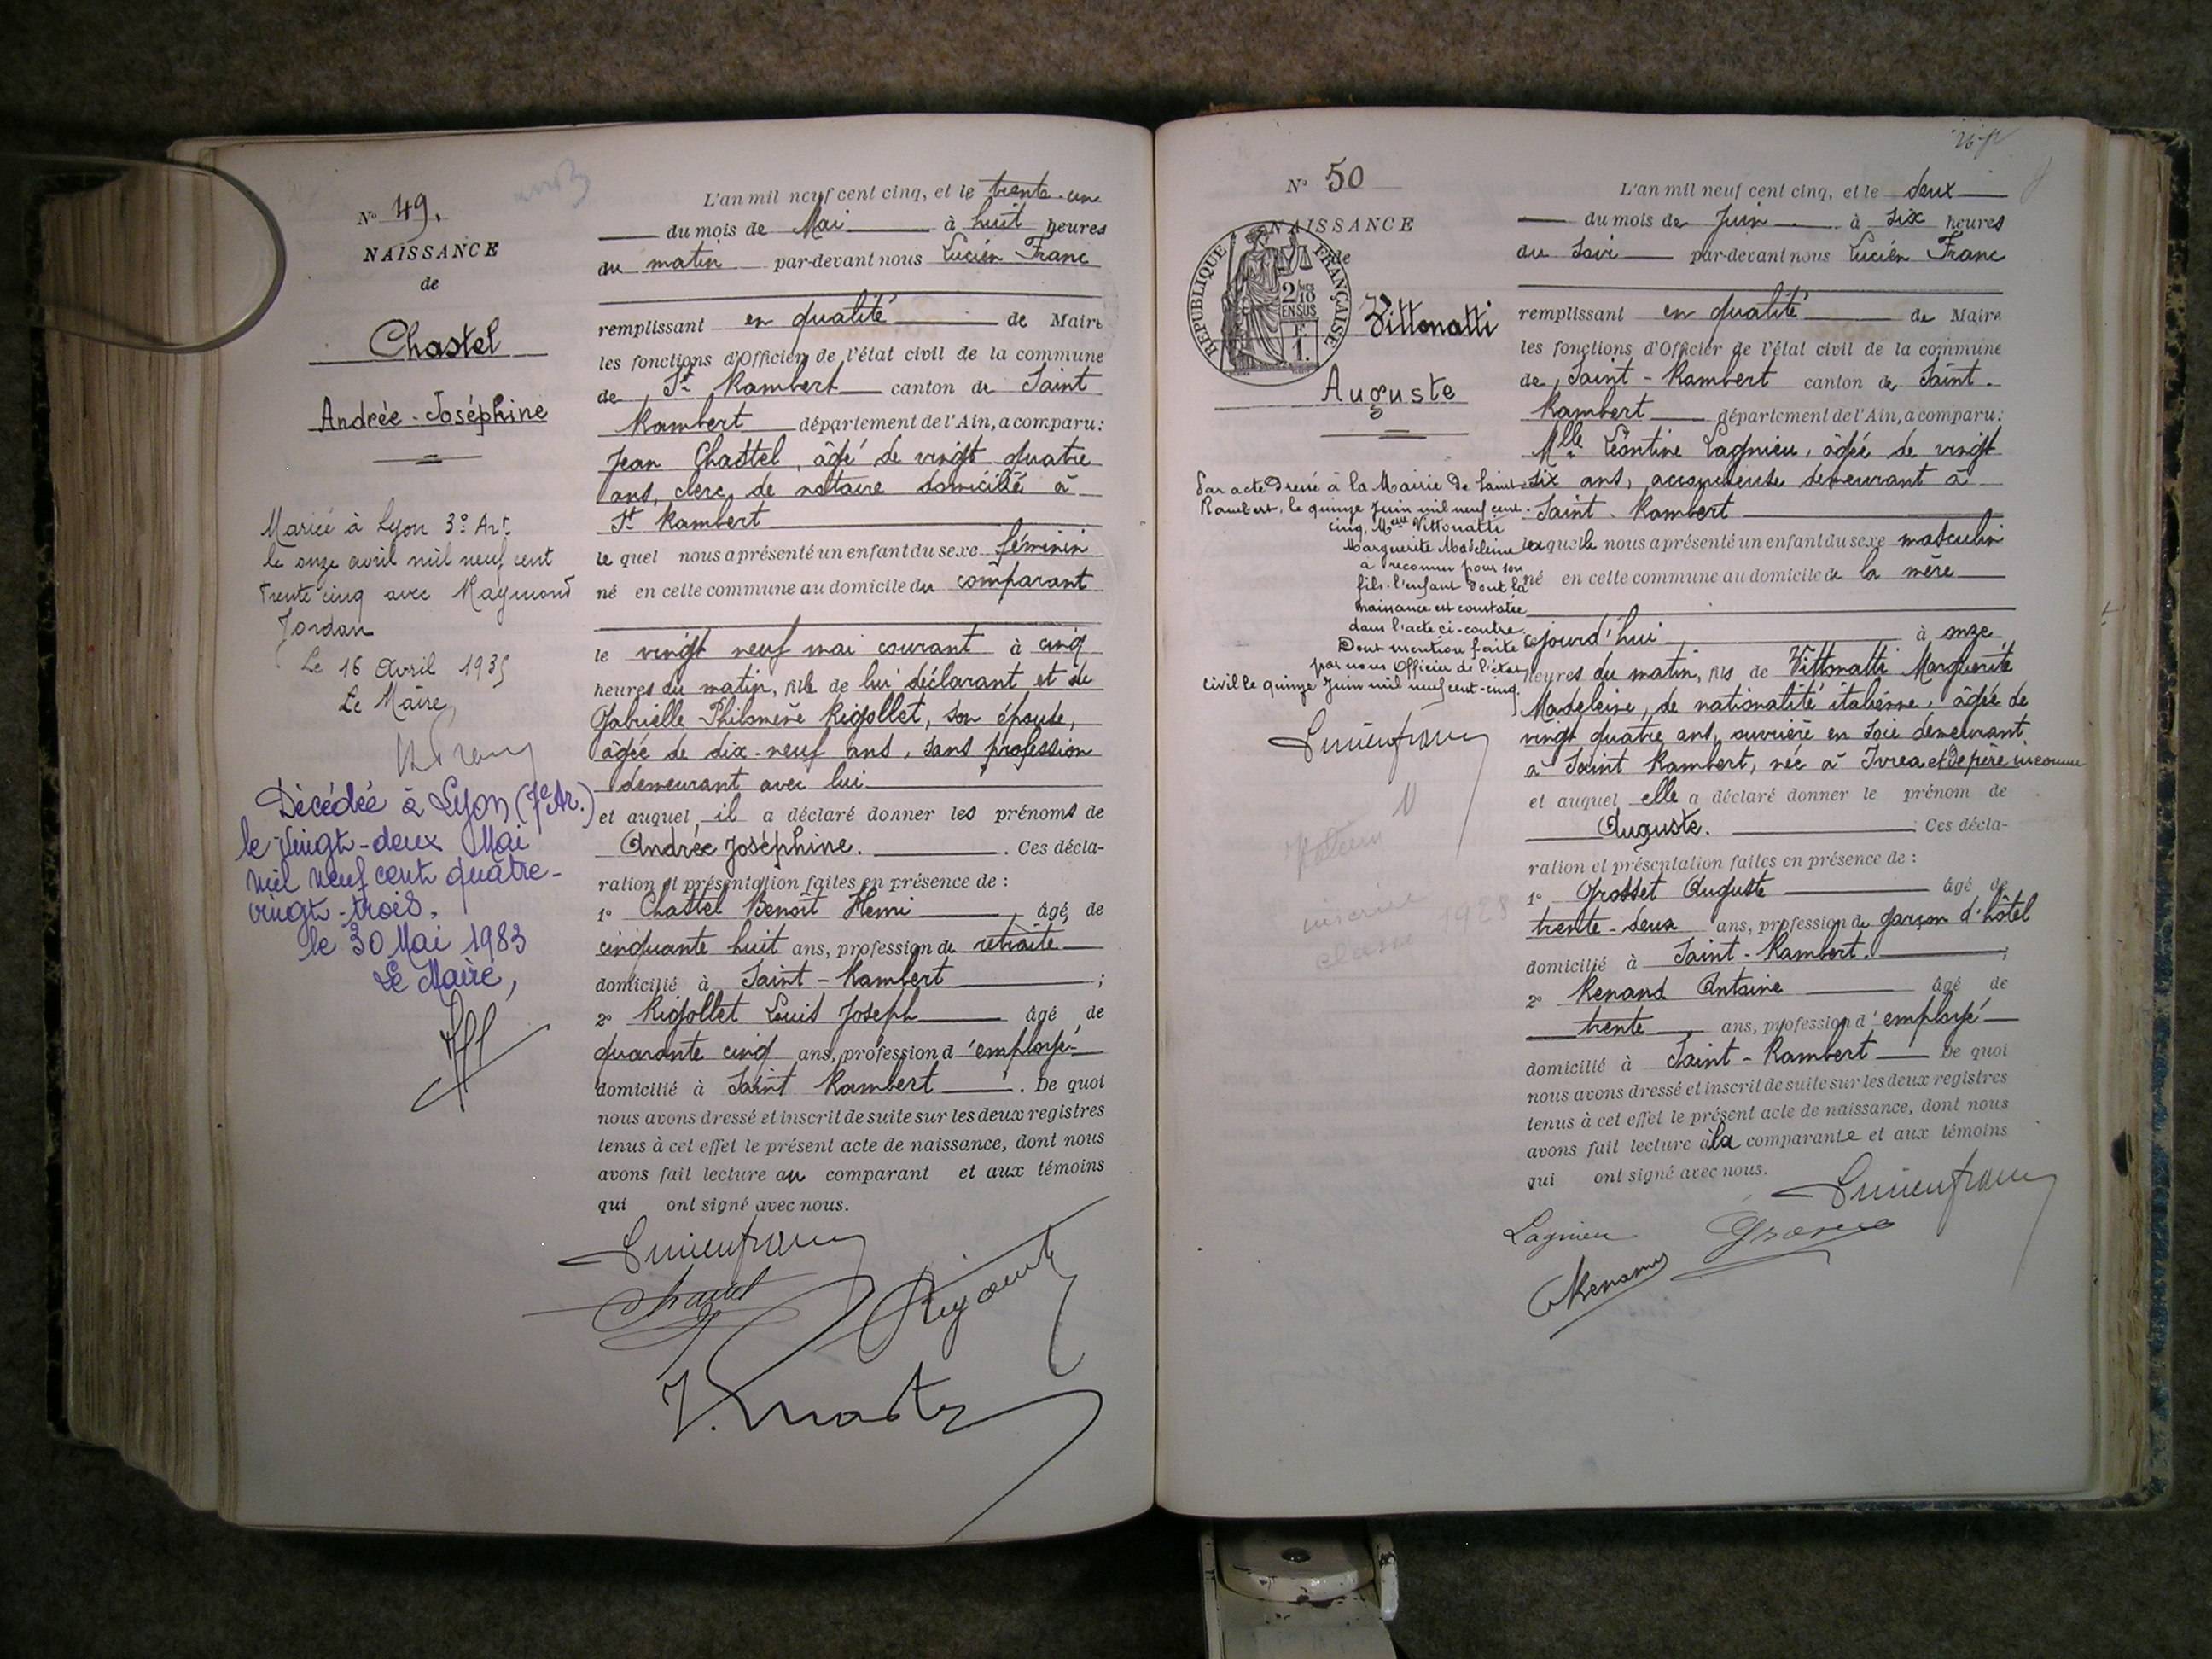 N° 49.
NAISSANCE
de
Chastel
Andrée-Joséphine
Mariée à Lyon 3e Art
le onze avril mil neuf cent
trente cinq avec Raymond
Jordan
Le 16 Avril 1935
Le Maire,
Décédée à Lyon (7e Ar.)
le vingt-deux Mai
mil neuf cent quatre-
vingt-trois.
le 30 Mai 1983
Le Maire,
L'an mil neuf cent cinq, et le trente-un
du mois de Mai à huit heures
du matin par-devant nous Lucien Franc
remplissant en qualité de Maire
les fonctions d'Officier de l'état civil de la commune
de St Rambert canton de Saint
Rambert département de l'Ain, a comparu:
Jean Chastel, âgé de vingt quatre
ans, clerc de notaire domicilié à
St Rambert
le quel nous a présenté un enfant du sexe féminin
né en cette commune au domicile du comparant
le vingt neuf mai courant à cinq
heures du matin, fille de lui déclarant et de
Gabrielle Philomène Rigollet, son épouse,
âgée de dix-neuf ans, sans profession
demeurant avec lui
et auquel il a déclaré donner les prénoms de
Andrée Joséphine. Ces décla-
ration et présentation faites en présence de :
1° Chastel Benoît Henri, âgé de
cinquante huit ans, profession de retraité
domicilié à Saint-Rambert ;
2° Rigollet Louis Joseph âgé de
quarante cinq ans, profession d'employé
domicilié à Saint Rambert. De quoi
nous avons dressé et inscrit de suite sur les deux registres
tenus à cet effet le présent acte de naissance, dont nous
avons fait lecture au comparant et aux témoins
qui ont signé avec nous.
Lucien Franc
Chastel
N° 50
NAISSANCE
de
RÉPUBLIQUE FRANÇAISE
2/10
EN SUS
F.
1.
Vittonatti
Auguste
Par acte dressé à la Mairie de Saint-
Rambert, le quinze Juin mil neuf cent-
cinq, Melle Vittonatti
Marguerite Madeleine
a reconnu pour son
fils l'enfant dont la
naissance est constatée
dans l'acte ci-contre.
Dont mention faite
par nous Officier de l'état
civil le quinze Juin mil neuf cent-cinq.
Lucien Franc
classe 1925
L'an mil neuf cent cinq, et le deux
du mois de Juin à six heures
du soir par-devant nous Lucien Franc
remplissant en qualité de Maire
les fonctions d'Officier de l'état civil de la commune
de Saint-Rambert canton de Saint-
Rambert département de l'Ain, a comparu:
Mlle Léontine Lagnieu, âgée de vingt
six ans, accoucheuse demeurant à
Saint-Rambert
laquelle nous a présenté un enfant du sexe masculin
né en cette commune au domicile de la mère
cejourd'hui à onze
heures du matin, fils de Vittonatti Marguerite
Madeleine, de nationalité italienne, âgée de
vingt quatre ans, ouvrière en soie demeurant
à Saint Rambert, née à Ivrea et de père inconnu
et auquel elle a déclaré donner le prénom de
Auguste. Ces décla-
ration et présentation faites en présence de :
1° Grosset Auguste âgé de
trente-deux ans, profession de garçon d'hôtel
domicilié à Saint-Rambert. ;
2° Renand Antoine âgé de
trente ans, profession d'employé
domicilié à Saint-Rambert De quoi
nous avons dressé et inscrit de suite sur les deux registres
tenus à cet effet le présent acte de naissance, dont nous
avons fait lecture à la comparante et aux témoins
qui ont signé avec nous.
Lucien Franc
Lagnieu
Renand